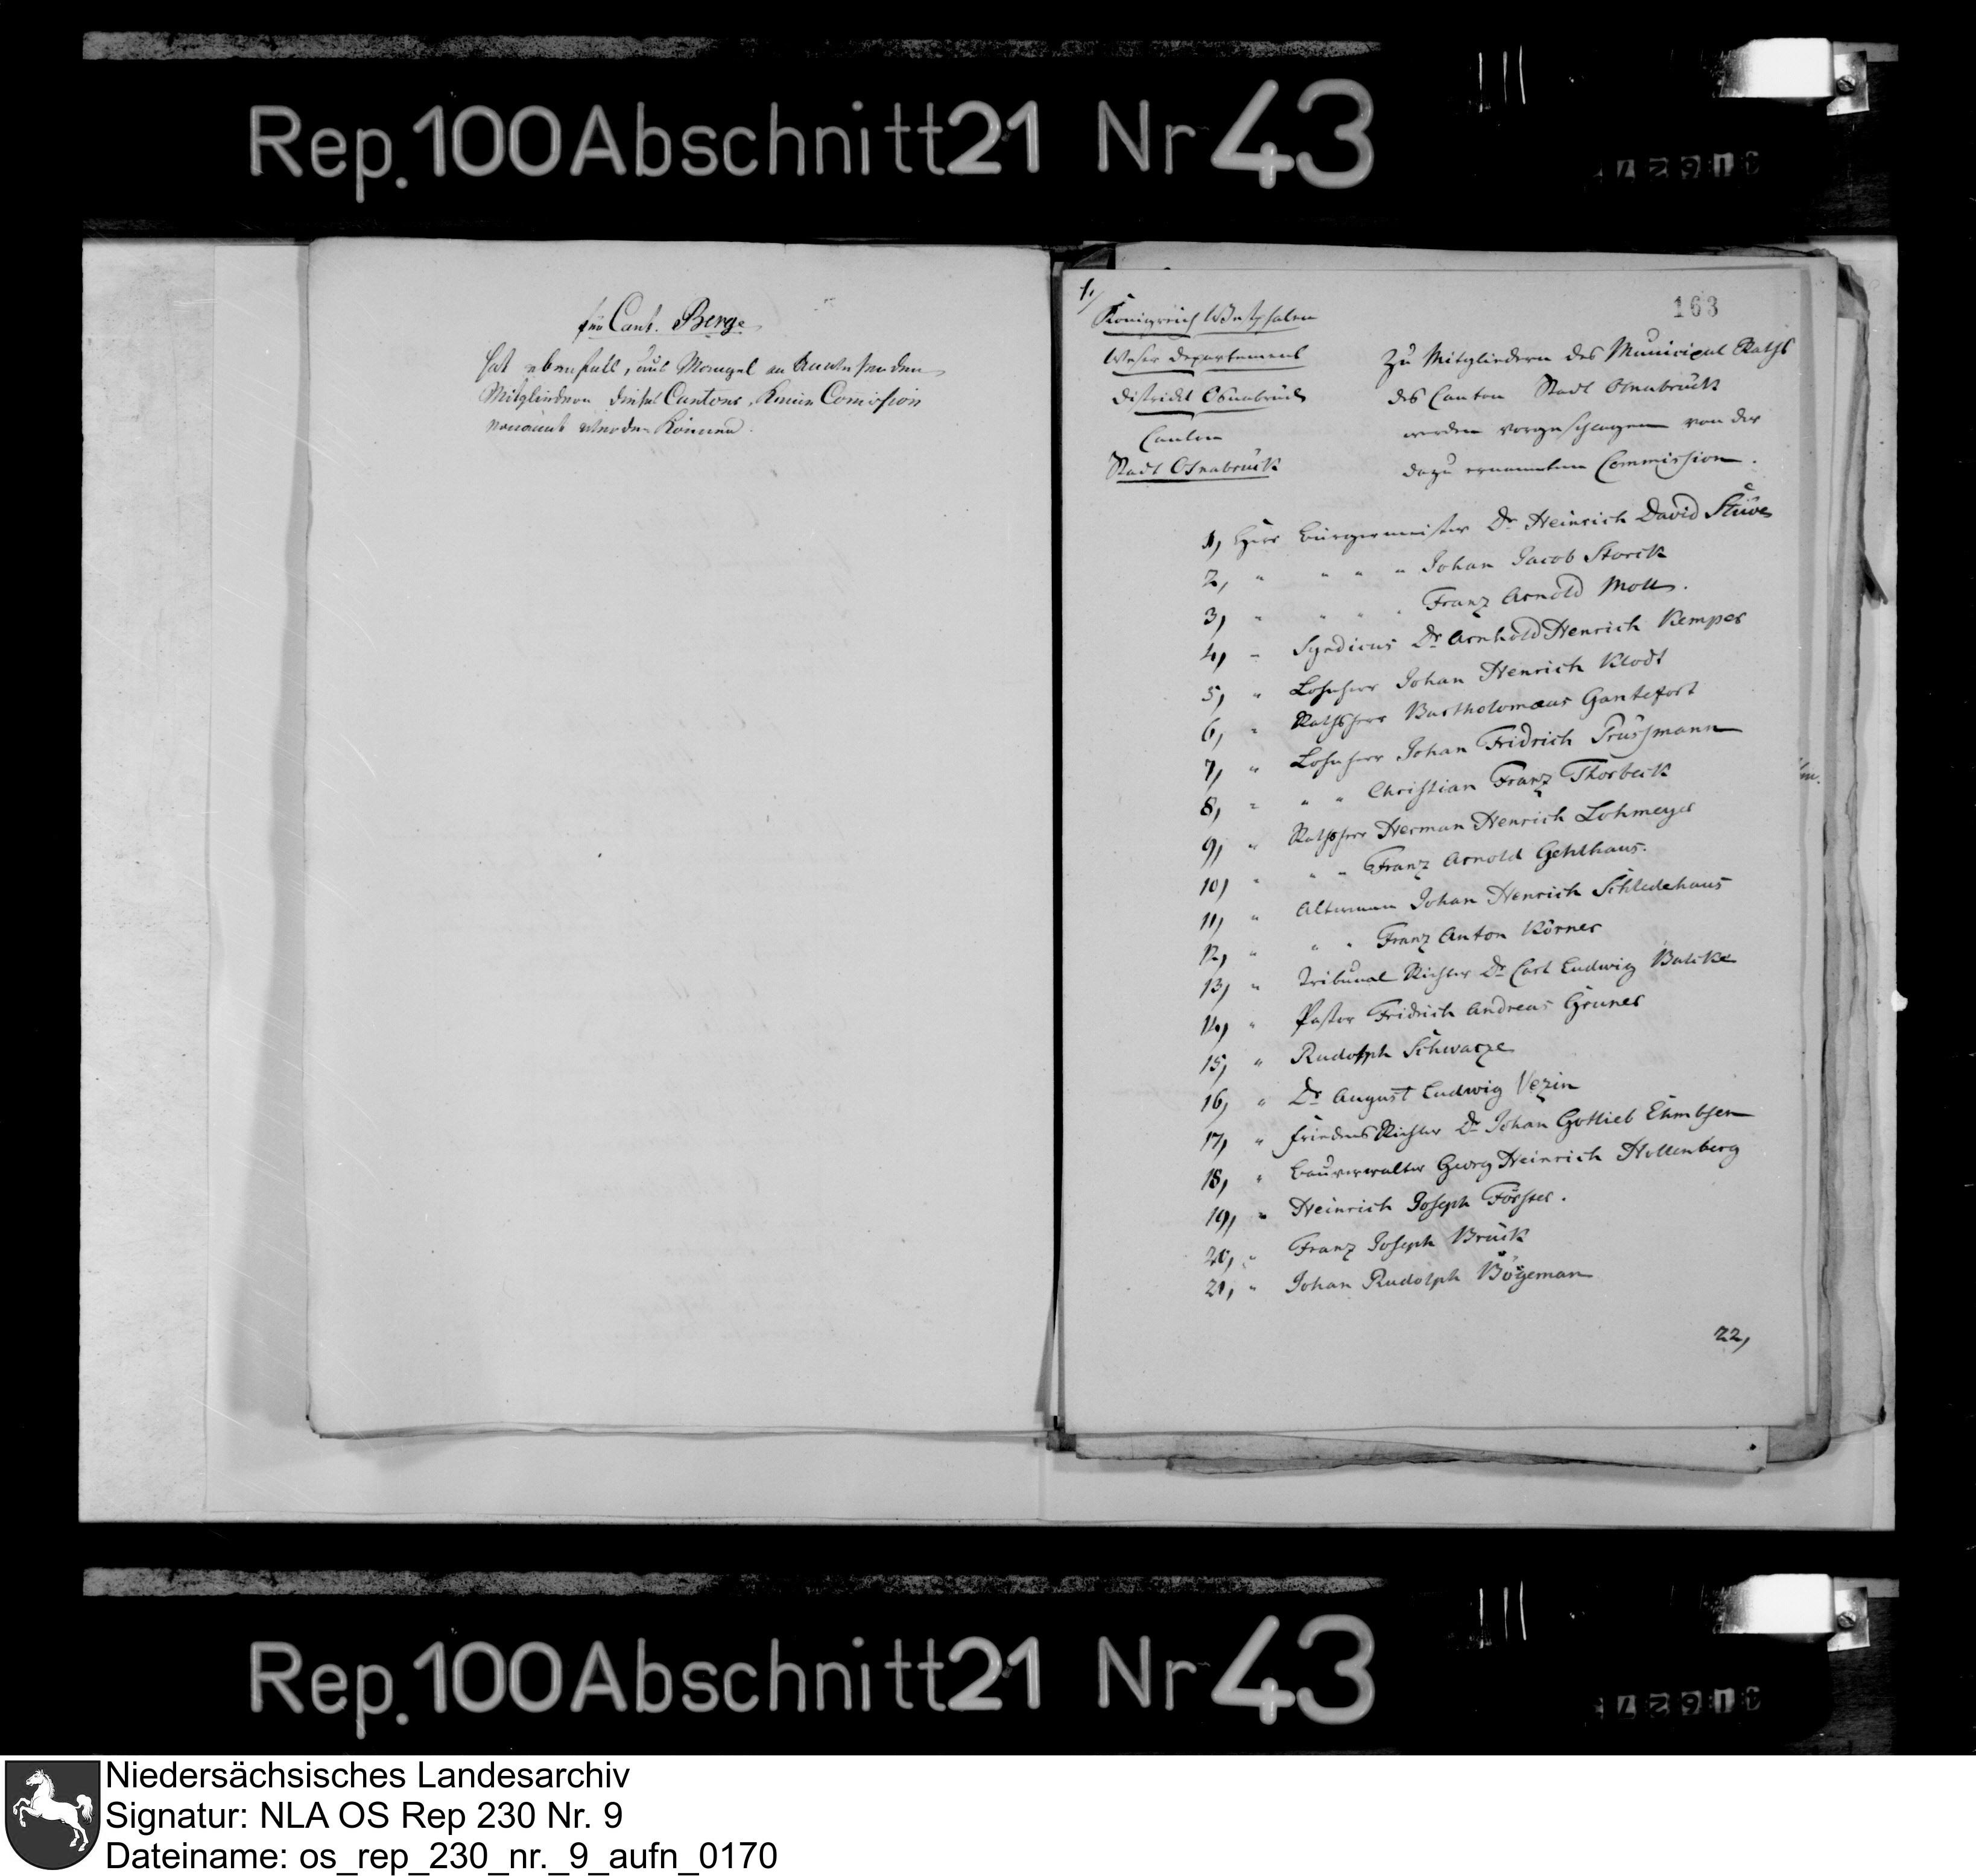 Rep. 100 Abschnitt 21 Nr 43
für Cant. Berge
hat ebenfalls, aus Mangel an Anwesenden
Mitgliedern dieses Cantons, keine Comission
ernannt werden können.
1,
163
Königreich Westphalen
Weser Departement
District Osnabrück
Canton
Stadt Osnabrück
Zu Mitgliedern des Municipal Raths
des Canton Stadt Osnabrück
werden vorgeschlagen von der
dazu ernannten Commission.
1, Herr Bürgermeister Dr Heinrich David Stüve
2, " " " " Johan Jacob Storck
3, " " " " Franz Arnold Moll.
4, " Syndicus Dr Arnhold Henrich Kemper
5, " Lohnherr Johan Henrich Klodt
6, " Rathsherr Bartholomaeus Gantefort
7, " Lohnherr Johan Fridrich Prüssmann
8, " " " Christian Franz Thorbeck
9, " Rathsherr Herman Henrich Lohmeyer
10, " " " Franz Arnold Gehlhaus.
11, " Alterman Johan Henrich Schledehaus
12, " " " Franz Anton Körner
13, " Tribunal Richter Dr Carl Ludwig Balcke
14, " Pastor Fridrich Andreas Gruner
15, " Rudolph Schwarze
16, " Dr August Ludwig Vezin
17, " Friedens Richter Dr Johan Gottlieb Ehmbsen
18, " Bauverwalter Georg Heinrich Hollenberg
19, " Heinrich Joseph Förster.
20, " Franz Joseph Brück
21, " Johan Rudolph Bögeman
22,
Rep. 100 Abschnitt 21 Nr 43
Niedersächsisches Landesarchiv
Signatur: NLA OS Rep 230 Nr. 9
Dateiname: os_rep_230_nr._9_aufn_0170